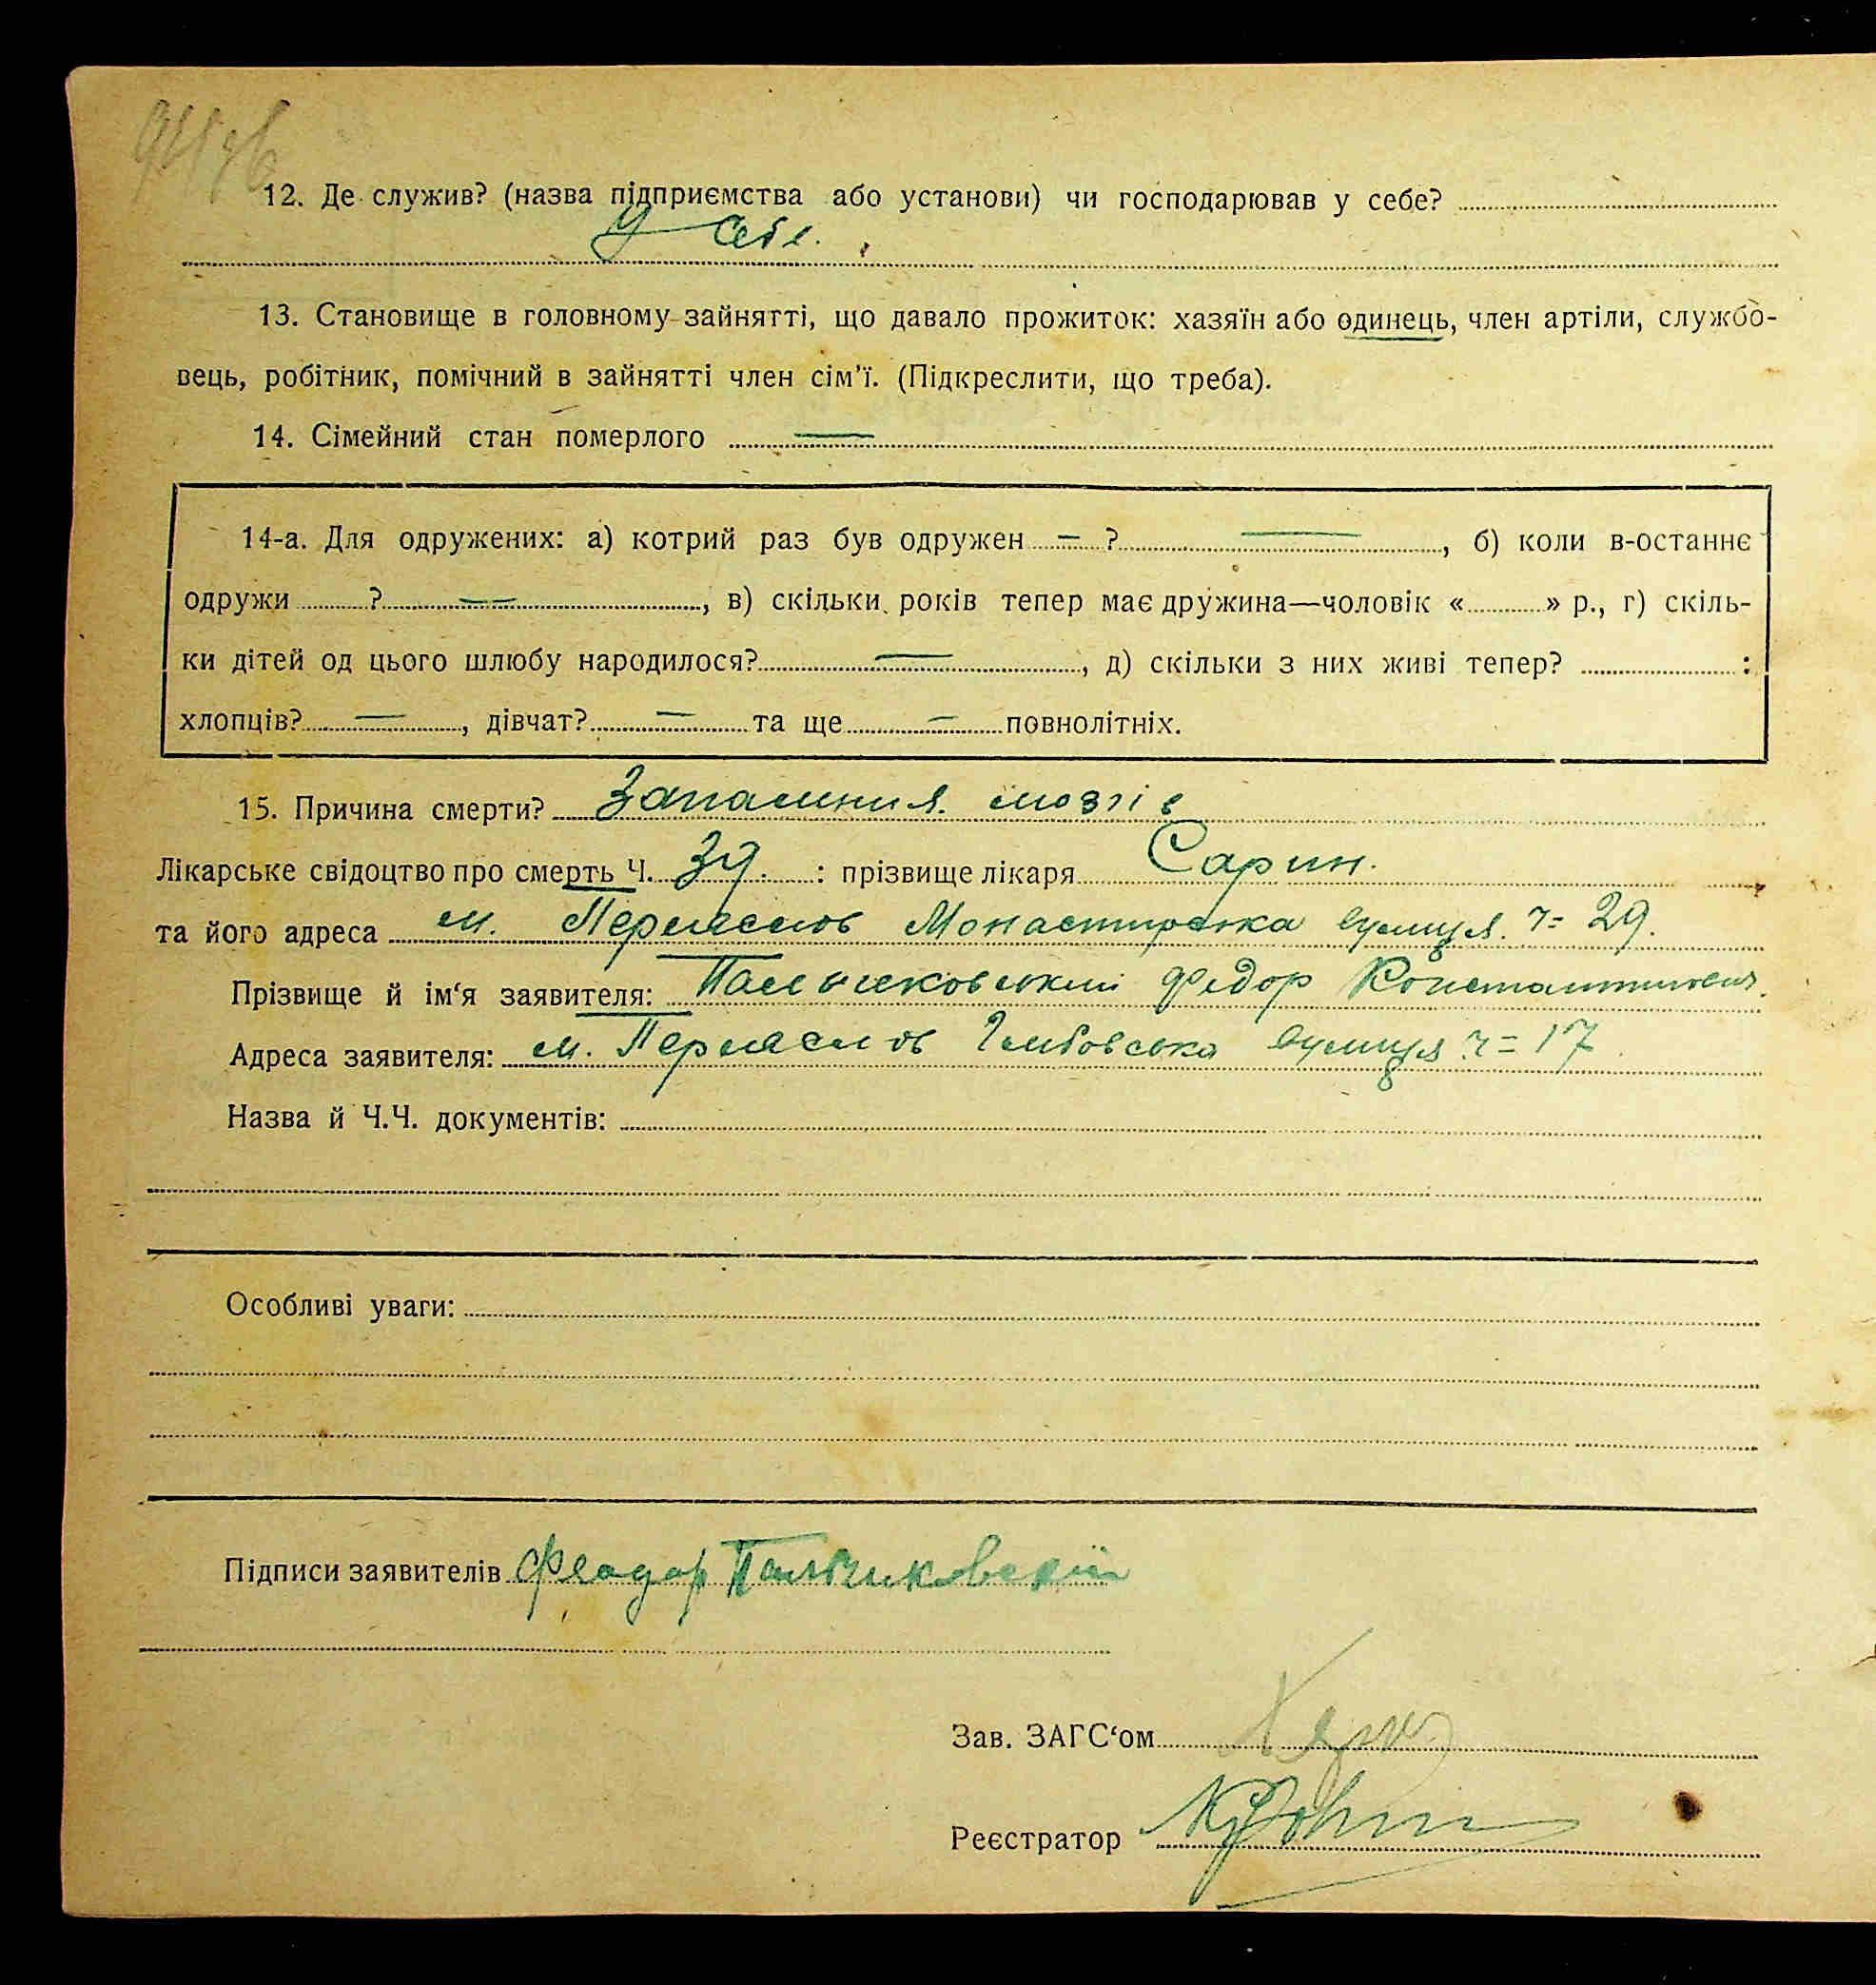 12. Де служив? (назва підприємства або установи) чи господарював у себе?
У себе.
13. Становище в головному зайнятті, що давало прожиток: хазяїн або одинець, член артіли, службо-
вець, робітник, помічний в зайнятті член сім’ї. (Підкреслити, що треба).
14. Сімейний стан померлого —
14-а. Для одружених: а) котрий раз був одружен — ? —, б) коли в-останнє
одружи ? —, в) скільки років тепер має дружина—чоловік « » р., г) скіль-
ки дітей од цього шлюбу народилося? —, д) скільки з них живі тепер? :
хлопців? —, дівчат? — та ще — повнолітніх.
15. Причина смерти? Запаленния мозгів
Лікарське свідоцтво про смерть Ч. 39. : прізвище лікаря Сарин.
та його адреса м. Переяслов Монастирська вулиця. ч= 29.
Прізвище й ім‘я заявителя: Пальчиковський Федор Константинович.
Адреса заявителя: м. Переяслов вулиця ч= 17
Назва й Ч.Ч. документів:
Особливі уваги:
Підписи заявителів Феодор Пальчиковский
Зав. ЗАГС‘ом
Реєстратор